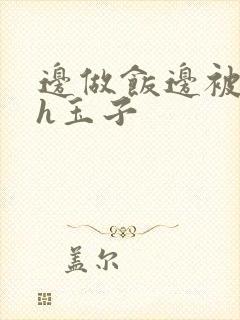 邊做飯邊被
h玉子
盖尔